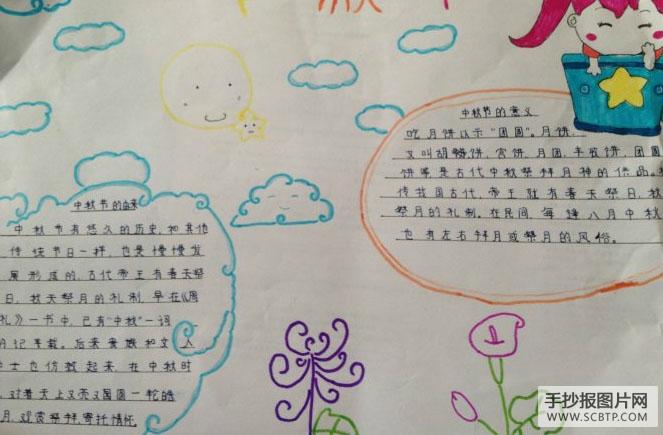 中秋节的由来
中秋节有悠久的历史,和其他
传统节日一样,也是慢慢发
展形成的,古代帝王有春天祭
日,秋天祭月的礼制,早在《周
礼》一书中,已有"中秋"一词
月记年载。后来贵族和文人
学士也仿效起来,在中秋时
,对着天上又亮又圆一轮皓
月,观赏祭拜,寄托情怀
中秋节的意义
吃月饼以示"团圆"。月饼,
又叫胡饼、宫饼、月团、丰收饼、团圆
饼等是古代中秋祭拜月神的供品。
传我国古代,帝王就有春天祭日、秋
祭月的礼制。在民间,每逢八月中秋
也有左右拜月或祭月的风俗。
手抄报图片网
WWW.SCBTP.COM